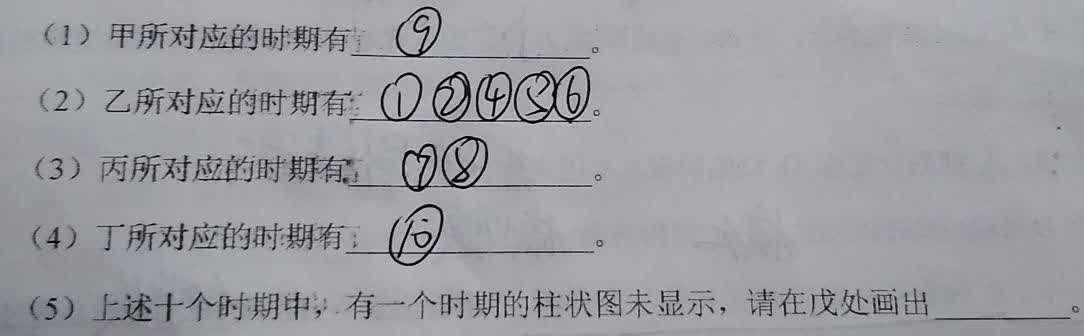 (1) 甲所对应的时期有 ⑨ 。
(2) 乙所对应的时期有: ①②④⑤⑥。
(3) 丙所对应的时期有: ⑦⑧ 。
(4) 丁所对应的时期有: ⑩ 。
(5) 上述十个时期中，有一个时期的柱状图未显示，请在戊处画出 。